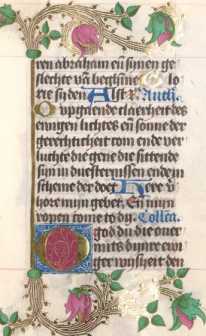 ren abraham eñ sinen ge
slechte vā beghīne Glo
rie si den Als Antī.
O upgaende claerheit des
ewigen lichtes eñ sonne der
gerechticheit com ende ver
luchte die gene die sittende
sijn in duesternissen ende
scheme der doet Here v
hore mijn gebet Eñ mijn
ropen come to dy. Collca.
god du die over
mits dijnre ewi
ger wijsheit den